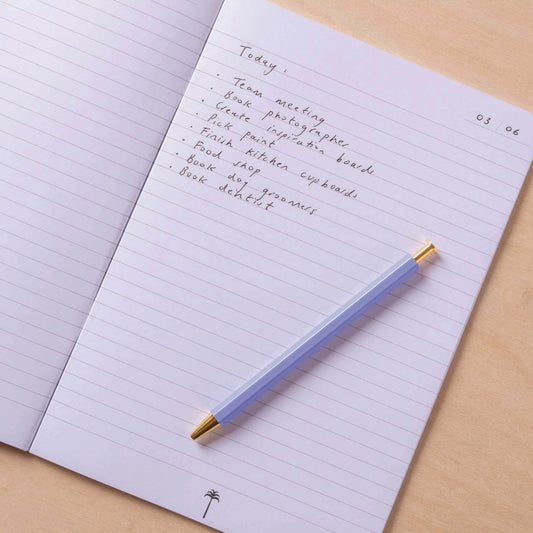 Today.
03 / 06
· Team meeting
· Book photographer
· Create inspiration boards
· Pick paint
· Finish kitchen cupboards
· Food shop
· Book dog groomers
· Book dentist